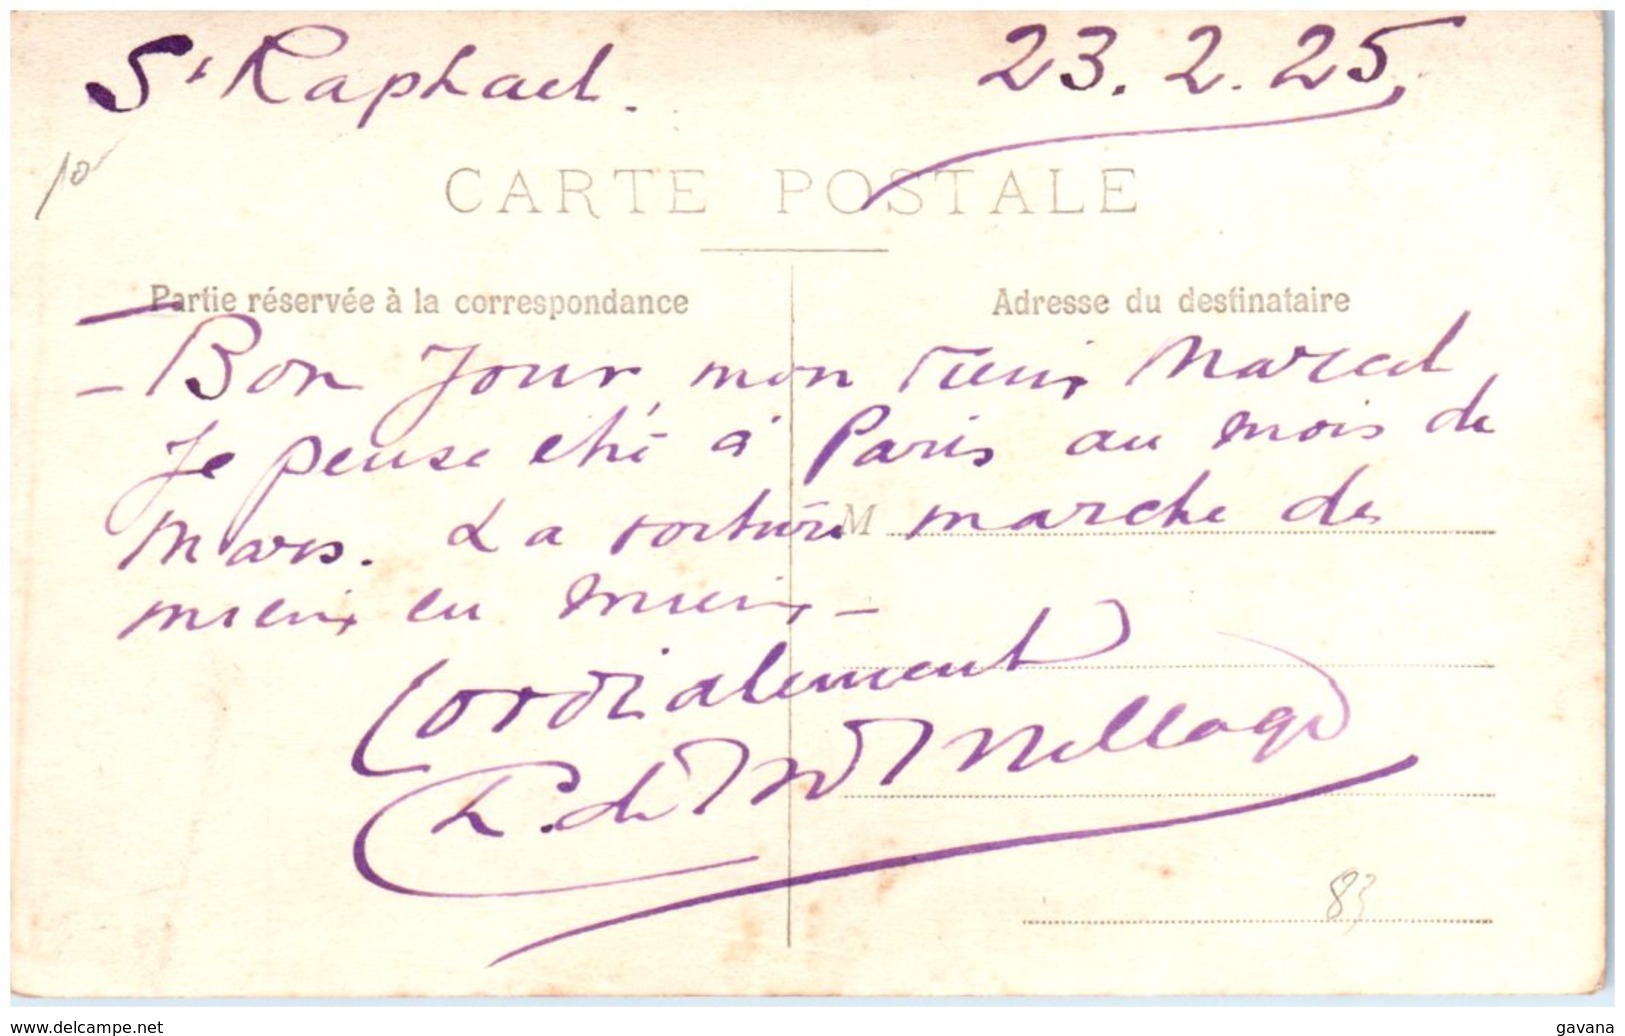 St Raphael. 23.2.25
10
CARTE POSTALE
Partie réservée à la correspondance
Adresse du destinataire
- Bon Jour, mon vieux Marcel,
Je pense être à Paris au mois de
Mars. La voiture marche de
M
mieux en mieux -
Cordialement
P. de
83
www.delcampe.net
gavana